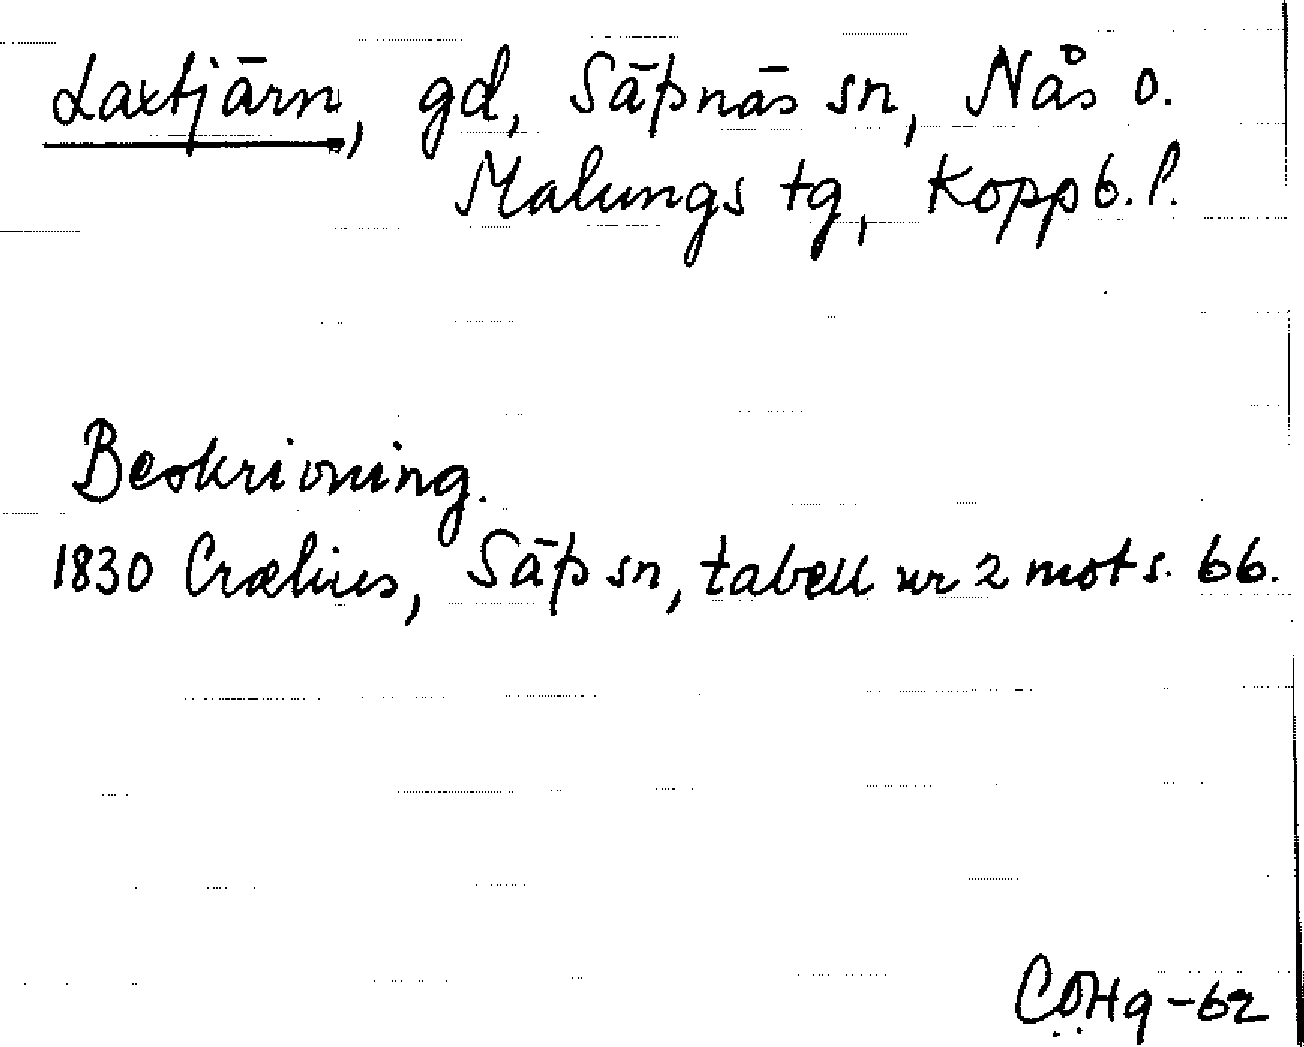 Laxtjärn, gd, Säfsnäs sn, Nås o.
Malungs tg, Koppb. l.
Beskrivning.
1830 Crælius, Säfs sn, tabell nr 2 mot s. 66.
CÖHg-62